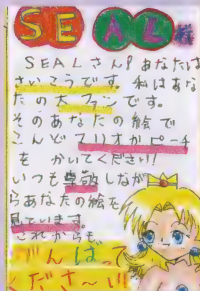 SEAL様
SEALさん!あなたは
さいこうです。私はあな
たの大ファンです。
そのあなたの絵で
こんどマリオかピーチ
をかいてください!
いつも感動しなが
らあなたの絵を
見ています。
これからも
がんばって
くださ〜い!!